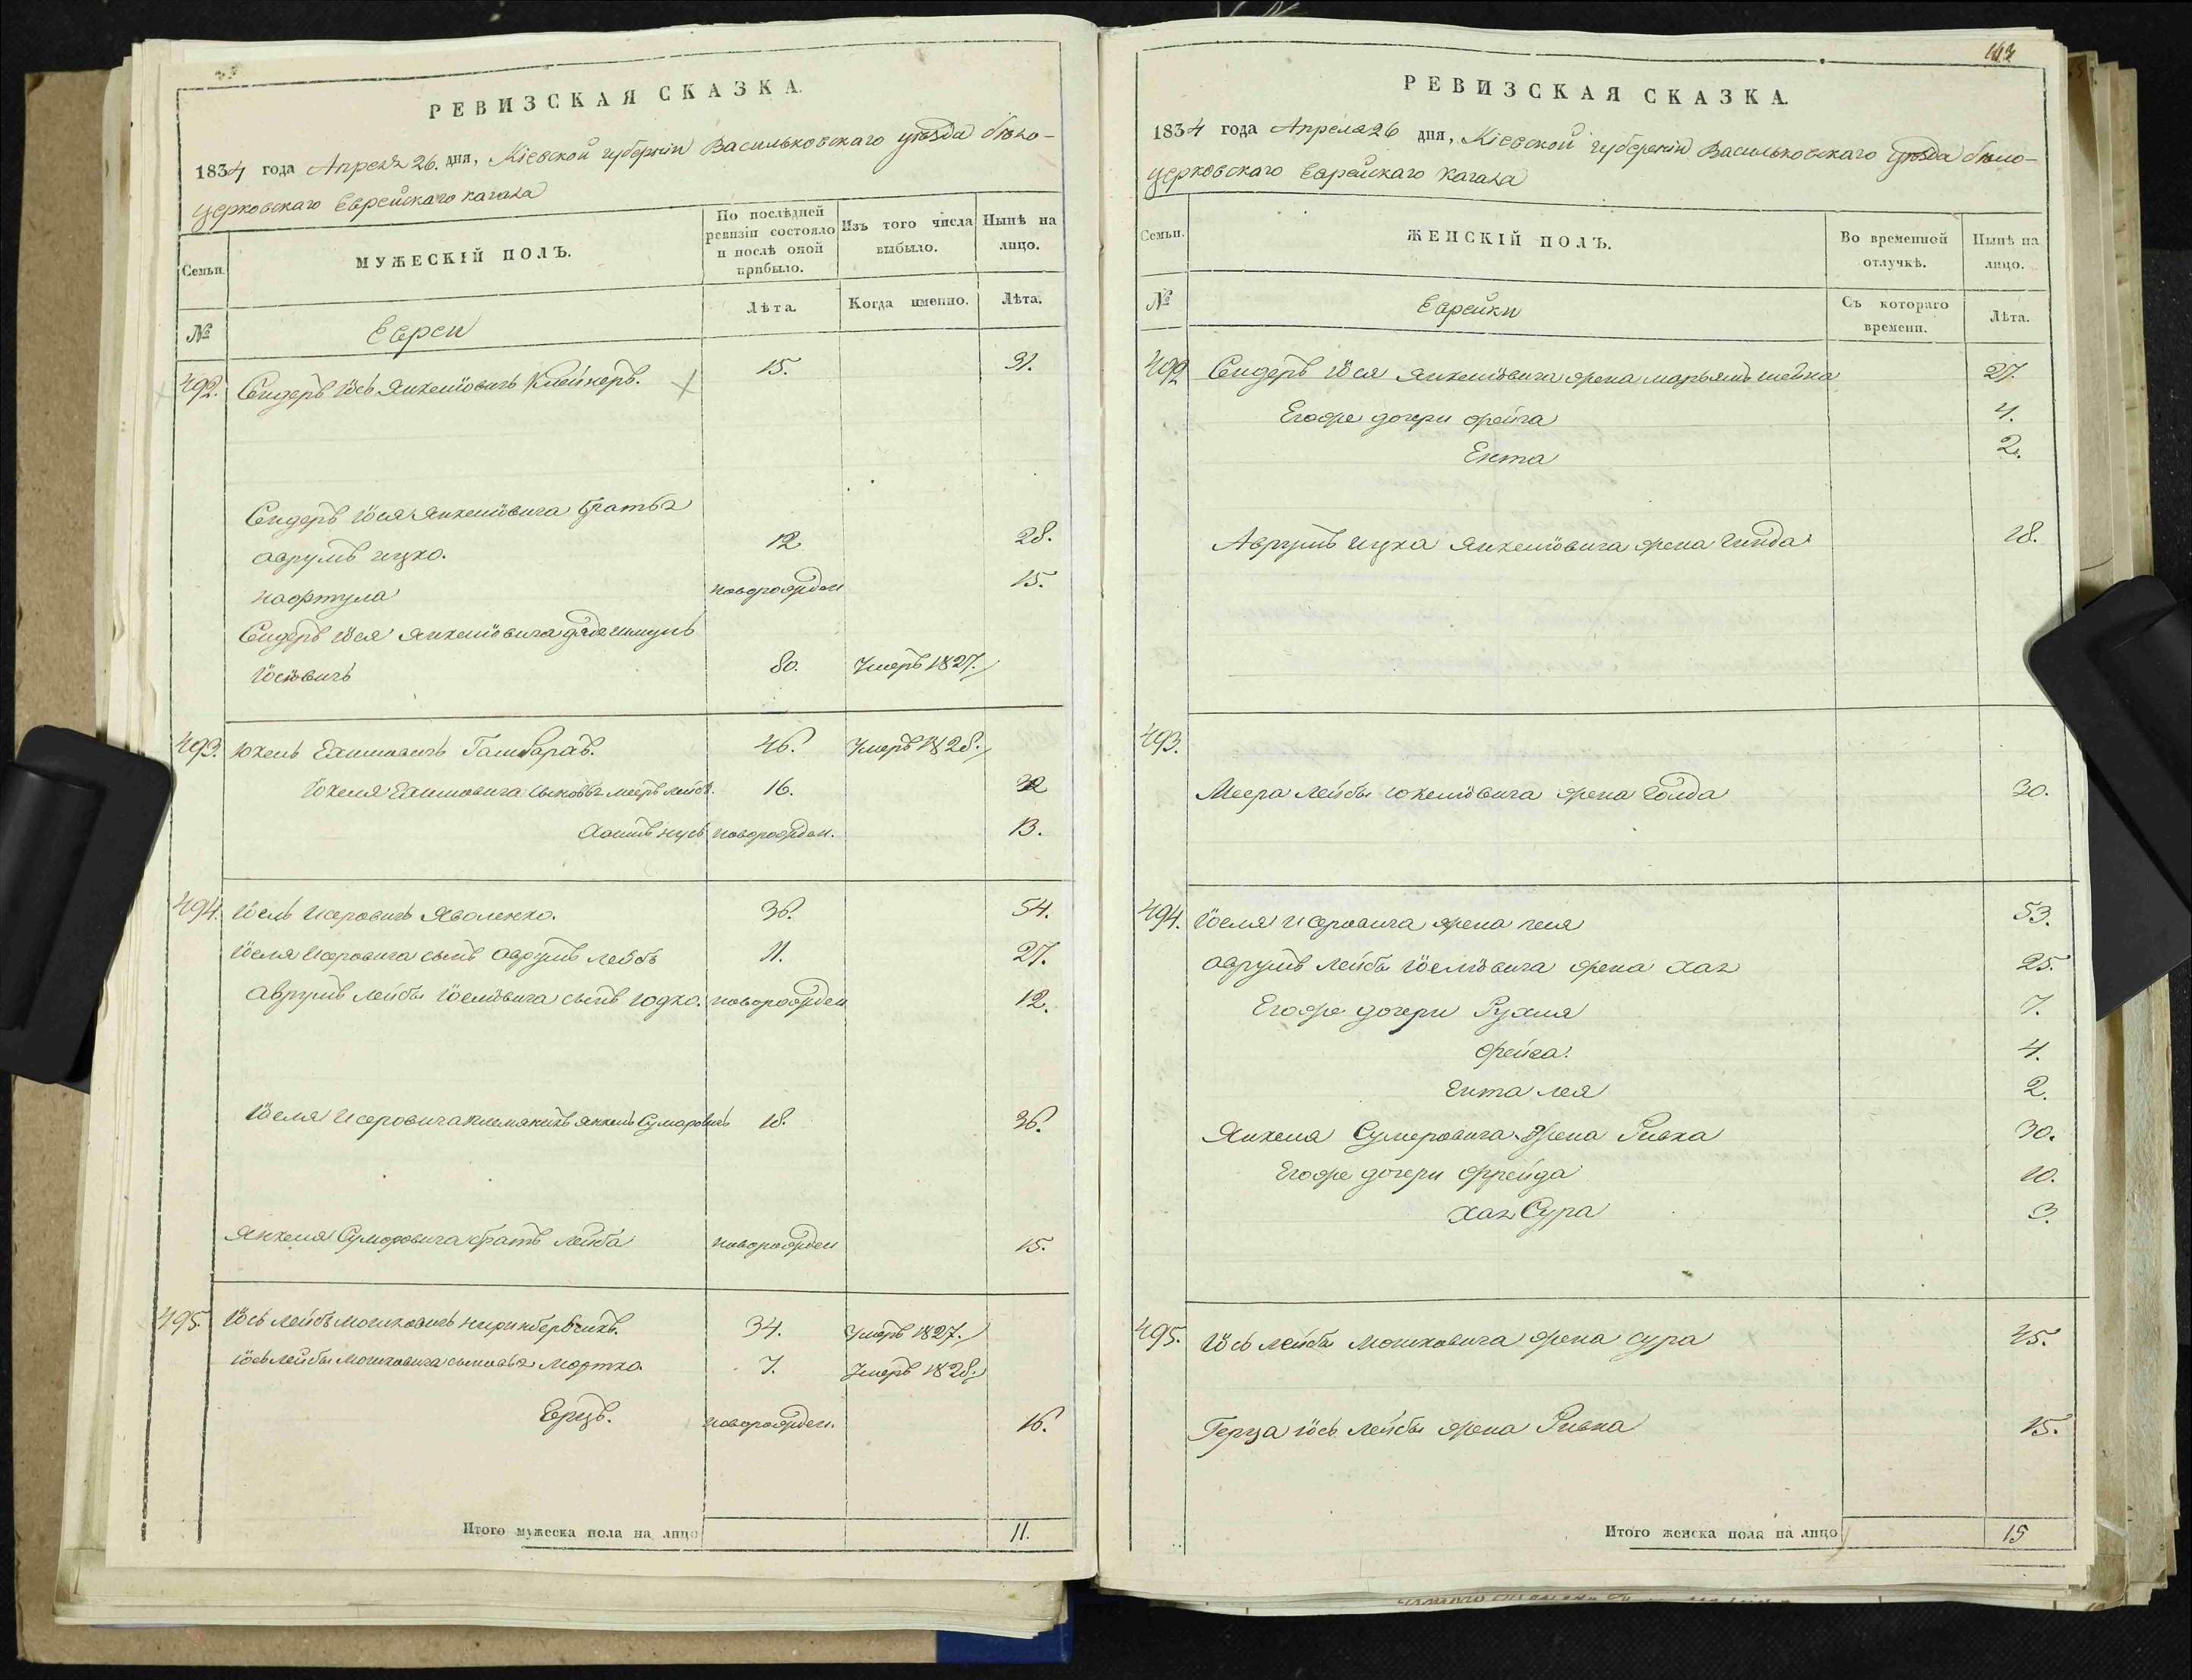 РЕВИЗСКАЯ СКАЗКА.
1834 года Апреля 26. дня, Кіевской губерніи Васильковскаго уѣзда бѣло-
церковскаго Еврейскаго кагала
Семьи.
МУЖЕСКІЙ ПОЛЪ.
По послѣдней ревизіи состояло и послѣ оной прибыло.
Изъ того числа выбыло.
Нынѣ на лицо.
№
Евреи
Лѣта.
Когда именно.
Лѣта.
492. Сендеръ Іось Янкеліовичъ Клейнеръ. 15. 31.
Сендеръ Іося Янкеліовича братья
аврумъ ицко. 12 28.
нафтула новорожден 15.
Сендеръ Іося Янкеліовича дядя
Іосіовичъ 80. Умеръ 1827.
493. Юкель Хаимовичъ 46. Умеръ 1828.
Юкеля Хаимовича сыновья мееръ лейба. 16. 32
Хаимъ нусъ новорожден. 13.
494. Іосль Исеровичъ Яволенко. 36. 54.
Іосля Исеровича сынъ аврумъ лейбъ 11. 27.
Аврумъ лейбы Іосліовича сынъ юдко. новорожден 12.
Іосля Исеровича племяникъ янкель Сумаровичъ 18. 36.
Янкеля Сумеровича братъ лейба новорожден 15.
495. Іось лейбъ Мошковичъ 34. Умеръ 1827.
Іось лейбы Мошковича сыновья Мортко. 7. Умеръ 1828.
Герцъ. новорожден. 16.
Итого мужеска пола на лицо 11.
РЕВИЗСКАЯ СКАЗКА.
1834 года Апреля 26 дня, Кіевской губерніи Васильковскаго уѣзда бѣло-
церковскаго Еврейскаго кагала
Семьи.
ЖЕНСКІЙ ПОЛЪ.
Во временной отлучкѣ.
Нынѣ на лицо.
№
Еврейки
Съ котораго времени.
Лѣта.
492 Сендеръ Іося Янкеліовича жена марьямъ шейна 27.
Егоже дочери фейга 4.
Ента 2.
Аврумъ ицка Янкеліовича жена Гинда 18.
493.
Меера лейбы юкеліовича жена Голда 30.
494. Іосля Исеровича жена песя 53.
аврумъ лейбы Іосліовича жена хая 25.
Егоже дочери Рухля 7.
фейга. 4.
Ента лея 2.
Янкеля Сумеровича жена Ривка 30.
Егоже дочери фрейда 10.
хая Сура 3.
495. Іось лейбы мошковича жена сура 45.
Герца іось лейбы жена Ривка 15.
Итого женска пола на лицо 15